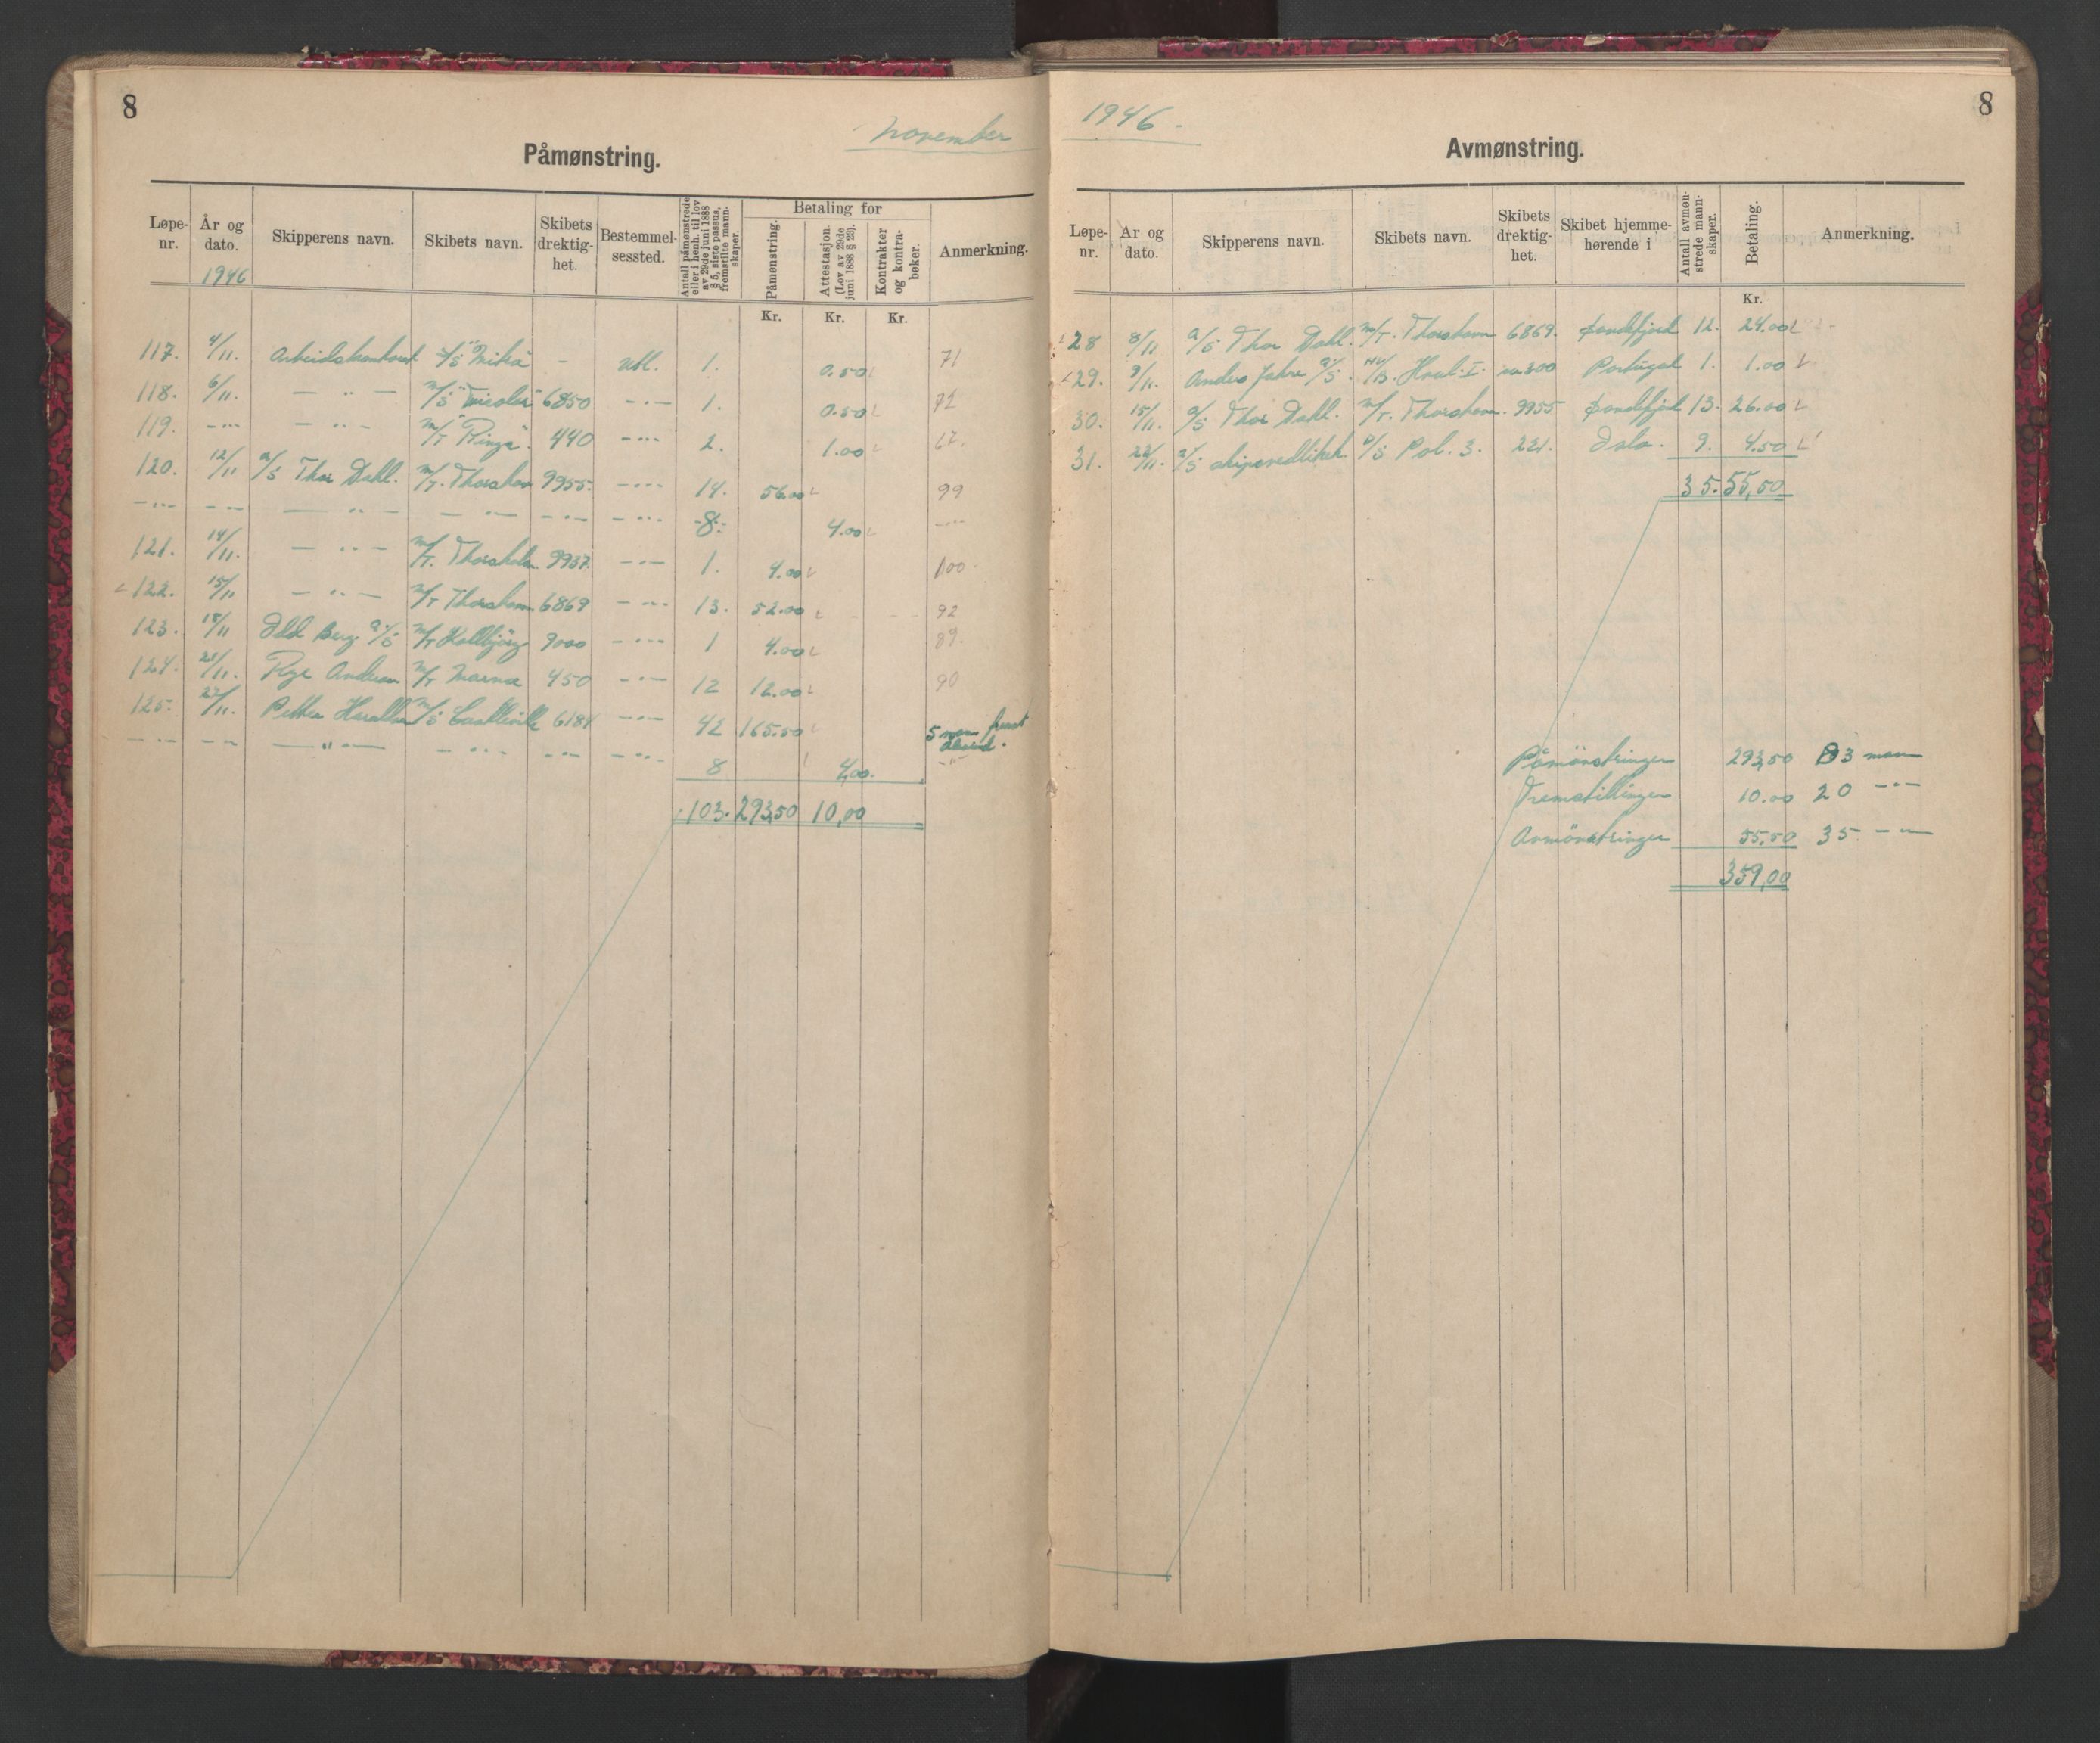 8
november
Påmønstring.
Løpe-nr. År og dato. Skipperens navn. Skibets navn. Skibets drektig-het. Bestemmel-sessted. Antall påmønstrede eller i henh. til lov av 29de juni 1888 § 5, siste passus, fremstilte mann-skaper. Betaling for Påmønstring. Attestasjon. (Lov av 29de juni 1888 § 23). Kontrakter og kontra-bøker. Anmerkning.
1946
Kr. Kr. Kr.
117. 4/11. Arbeidskontoret - Utl. 1. 0.50 71
118. 6/11. — " — M/S 6850 — " — 1. 0.50 72
119. — " — — " — M/T "Ringa" 440 — " — 2. 1.00 67.
120. 12/11 A/S Thor Dahl. M/T. Thorshov 9955. — " — 14. 56.00 99
— " — — " — — " — — " — — " — — " — 8. 4.00 — " —
121. 14/11. — " — M/T. Thorsholm 9937. — " — 1. 4.00 100.
122. 15/11 — " — M/T Thorshavn 6869 — " — 13. 52.00 92
123. 18/11 Odd Berg A/S M/T Hallbjörg 9000 — " — 1 4.00 89.
124. 21/11. Andersen M/T 450 — " — 12 12.00 90
125. 27/11. Petter M/S Castleville 6184 — " — 42 165.50 5 man
— " — — " — — " — — " — — " — — " — 8 4,00. — " —
103. 293,50 10,00
1946.
8
Avmønstring.
Løpe-nr. År og dato. Skipperens navn. Skibets navn. Skibets drektig-het. Skibet hjemme-hørende i Antall avmøn-strede mann-skaper. Betaling. Anmerkning.
Kr.
28 8/11 A/S Thor Dahl. M/T. Thorshavn 6869. Sandefjord 12. 24.00
29. 9/11. Anders Jahre A/S. Hval I. 300 Portugal 1. 1.00
30. 15/11. A/S Thor Dahl. M/T. Thorshavn. 9955 Sandefjord 13. 26.00
31. 22/11. A/S D/S Pol. 3. 221. Oslo. 9. 4.50
35. 55,50
Påmönstringer 293,50 83 man
Fremstillinger 10.00 20 — " —
Avmönstringer 55,50 35 — " —
359,00